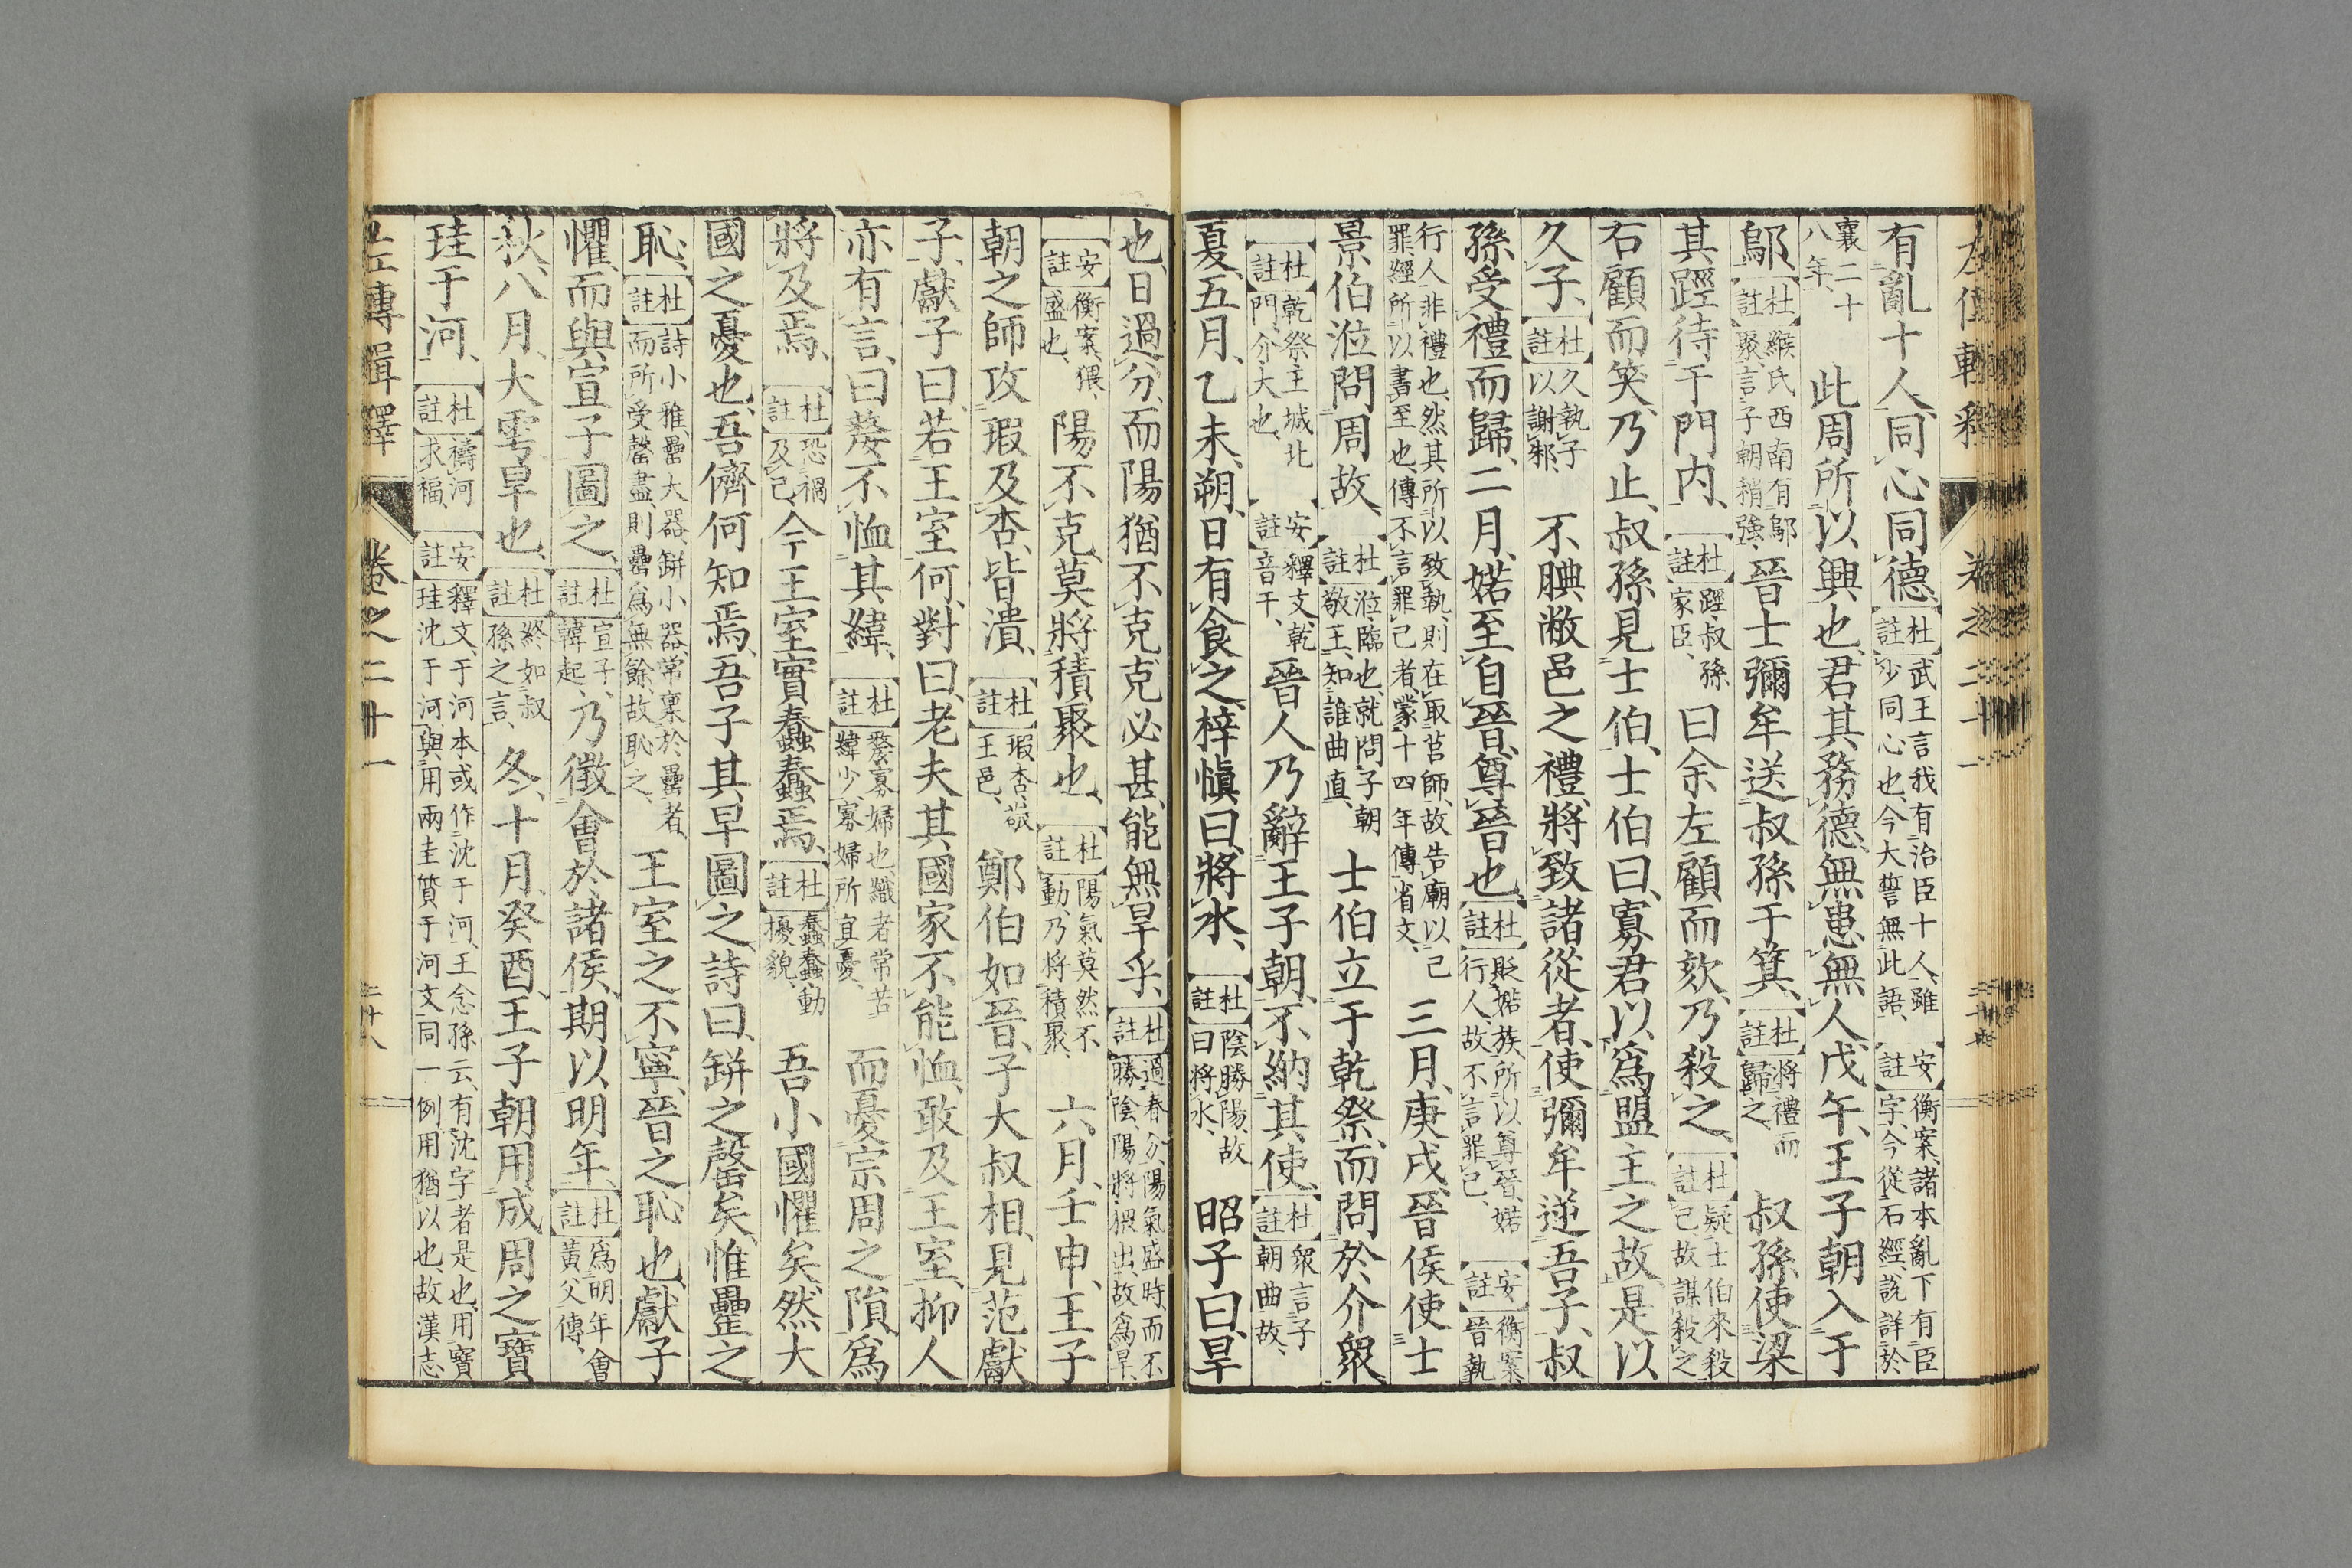 有亂十人、同心同德、【杜註】武王言我有治臣十人、雖少同心也、今大誓無此語、【安註】衡案、諸本亂下有臣字、今從石經、說詳於
襄二十八年、此周所以興也、君其務德、無患無人、戊午、王子朝入于
鄔、【杜註】緱氏西南有鄔聚、言子朝稍強、晉士彌牟送叔孫于箕、【杜註】將禮而歸之、叔孫使梁
其踁待于門內、【杜註】踁、叔孫家臣、曰余左顧而欬、乃殺之、【杜註】疑士伯來殺己、故謀殺之
右顧而笑、乃止、叔孫見士伯、士伯曰、寡君以爲盟主之故、是以
久子、【杜註】久執子以謝邾、不腆敝邑之禮、將致諸從者、使彌牟逆吾子、叔
孫受禮而歸、二月、婼至自晉、尊晉也、【杜註】貶婼族、所以尊晉、婼行人、故不言罪己、【安註】衡案、晉執
行人非禮也、然其所以致執、則在取莒師、故告廟以己罪、經所以書至也、傳不言罪己者、蒙十四年傳省文、三月、庚戌、晉侯使士
景伯涖問周故、【杜註】涖、臨也、就問子朝敬王、知誰曲直、士伯立于乾祭、而問於介衆、
【杜註】乾祭、王城北門、介大也、【安註】釋文、乾音干、晉人乃辭王子朝、不納其使、【杜註】衆言子朝曲故、
夏、五月、乙未、朔、日有食之、梓愼曰、將水、【杜註】陰勝陽、故曰將水、昭子曰、旱
也、日過分、而陽猶不克、克必甚、能無旱乎、【杜註】過春分、陽氣盛時、而不勝陰、陽將猥出、故爲旱、
【安註】衡案、猥、盛也、陽不克、莫將積聚也、【杜註】陽氣莫然不動、乃將積聚、六月、壬申、王子
朝之師攻瑕及杏、皆潰、【杜註】瑕杏、敬王邑、鄭伯如晉、子大叔相、見范獻
子、獻子曰、若王室何、對曰、老夫其國家不能恤、敢及王室、抑人
亦有言、曰嫠不恤其緯、【杜註】嫠、寡婦也、織者常苦緯少、寡婦所宜憂、而憂宗周之隕、爲
將及焉、【杜註】恐禍及己、今王室實蠢蠢焉、【杜註】蠢蠢、動擾貌、吾小國懼矣、然大
國之憂也、吾儕何知焉、吾子其早圖之、詩曰、缾之罄矣、惟罍之
恥、【杜註】詩小雅、罍大器、缾小器、常稟於罍者、而所受罄盡、則罍爲無餘、故恥之、王室之不寧、晉之恥也、獻子
懼、而與宣子圖之、【杜註】宣子、韓起、乃徵會於諸侯、期以明年、【杜註】爲明年會黃父傳、
秋、八月、大雩、旱也、【杜註】終如叔孫之言、冬、十月、癸酉、王子朝用成周之寶
珪于河、【杜註】禱河求福、【安註】釋文、于河本或作沈于河、王念孫云、有沈字者是也、用寶珪沈于河、與用兩圭質于河文同一例、用猶以也、故漢志
左傳輯釋　卷之二十一　二十八